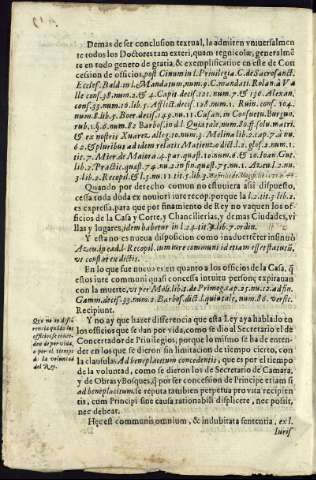 Demas de ser conclusion textual, la admiten vniuersalmen
te todos los Doctores tam exteri, quam regnicolæ, generalmē
te en todo genero de gratia, & exemplificatiue en este de Con
cession de officios, post Cinum in l. Privilegia. C. de Sacrosanct.
Eccles. Bald. in l. Mandatum, num. 9. C. mandati. Roland. a Va
lle cons. 38. num. 2. & 4. Capic. decis. 121. num. 7. & 136. Alexan.
cons. 33. num. 16. lib. 5. Afflict. decis. 128. num. 1. Ruin. cons. 104.
num. 8. lib. 5. Boer. decis. 149. nu. 11. Cassan. in Consuetu. Burgun.
rub. 1. §. 6. num. 82. Barbos. in d. l. Quia tale, num. 80. ff. solut. matri.
& ex nostris Xuarez. alleg. 10. num. 3. Molina lib. 2. cap. 7. à nu.
6. & pluribus ad idem relatis Matienç. à dict. l. 2. glos. 2. num. 1.
tit. 7. Mier. de Maiora. 4. par. quæst. 10. num. 6. & 16. Ioan. Gut.
lib. 7. Practic. quæst. 74. nu. 2. in fin. quæst. 75. n. 1. Azeu. l. 2. nu.
3. lib. 2. Recopil. & l. 3. nu. 11. tit. 5. lib. 3.
Quando por derecho comun no estuuiera assi dispuesto,
cessa toda doda ex nouiori iure recop. porque la l. 2. tit. 3. lib. 2.
es expressa, para que por finamiento de Rey no vaquen los of-
ficios de la Casa y Corte, y Chancillerias, y demas Ciudades, vi
llas y lugares, idem habetur in l. 24. tit. 3. lib. 7. ordin.
Y esta no es nueua disposicion como inaduertēter insinuò
Azeu. in ead. l. Recopil. cum iure communi id etiam esset statutū,
vt constat ex dictis.
En lo que fue nueua es en quanto a los officios de la Casa, q̄
estos iure communi quasi concessa intuitu personæ, expirauan
con la muerte, vt per Molin. lib. 2. de Primog. cap. 25. nu. 12. ad fin.
Gamm. decis. 33. num. 2. Barbos. dict. l. quia tale, num. 86. versic.
Recipiunt.
Y no ay que hazer differencia que esta Ley aya hablado en
los officios que se dan por vida, como se dio al Secretario el de
Concertador de Priuilegios; porque lo mismo se ha de enten-
der en los que se dieron sin limitacion de tiempo cierto, con
la clausula: Ad beneplacitum concedentis, que es por el tiempo
de la voluntad, como se dieron los de Secretario de Camara,
y de Obras y Bosques, q̄ por ser concession de Principe etiam si
ad beneplacitum, se reputa tanquam perpetua pro vita recipien
tis, cum Principi sine causa rationabili displicere, nec possit,
nec debeat.
Hęc est communis omnium, & indubitata sententia, ex l.
Iuris
Que no ay diffe
rencia que los
officios se conce
dan de por vida,
o por el tiempo
de la voluntad
del Rey.